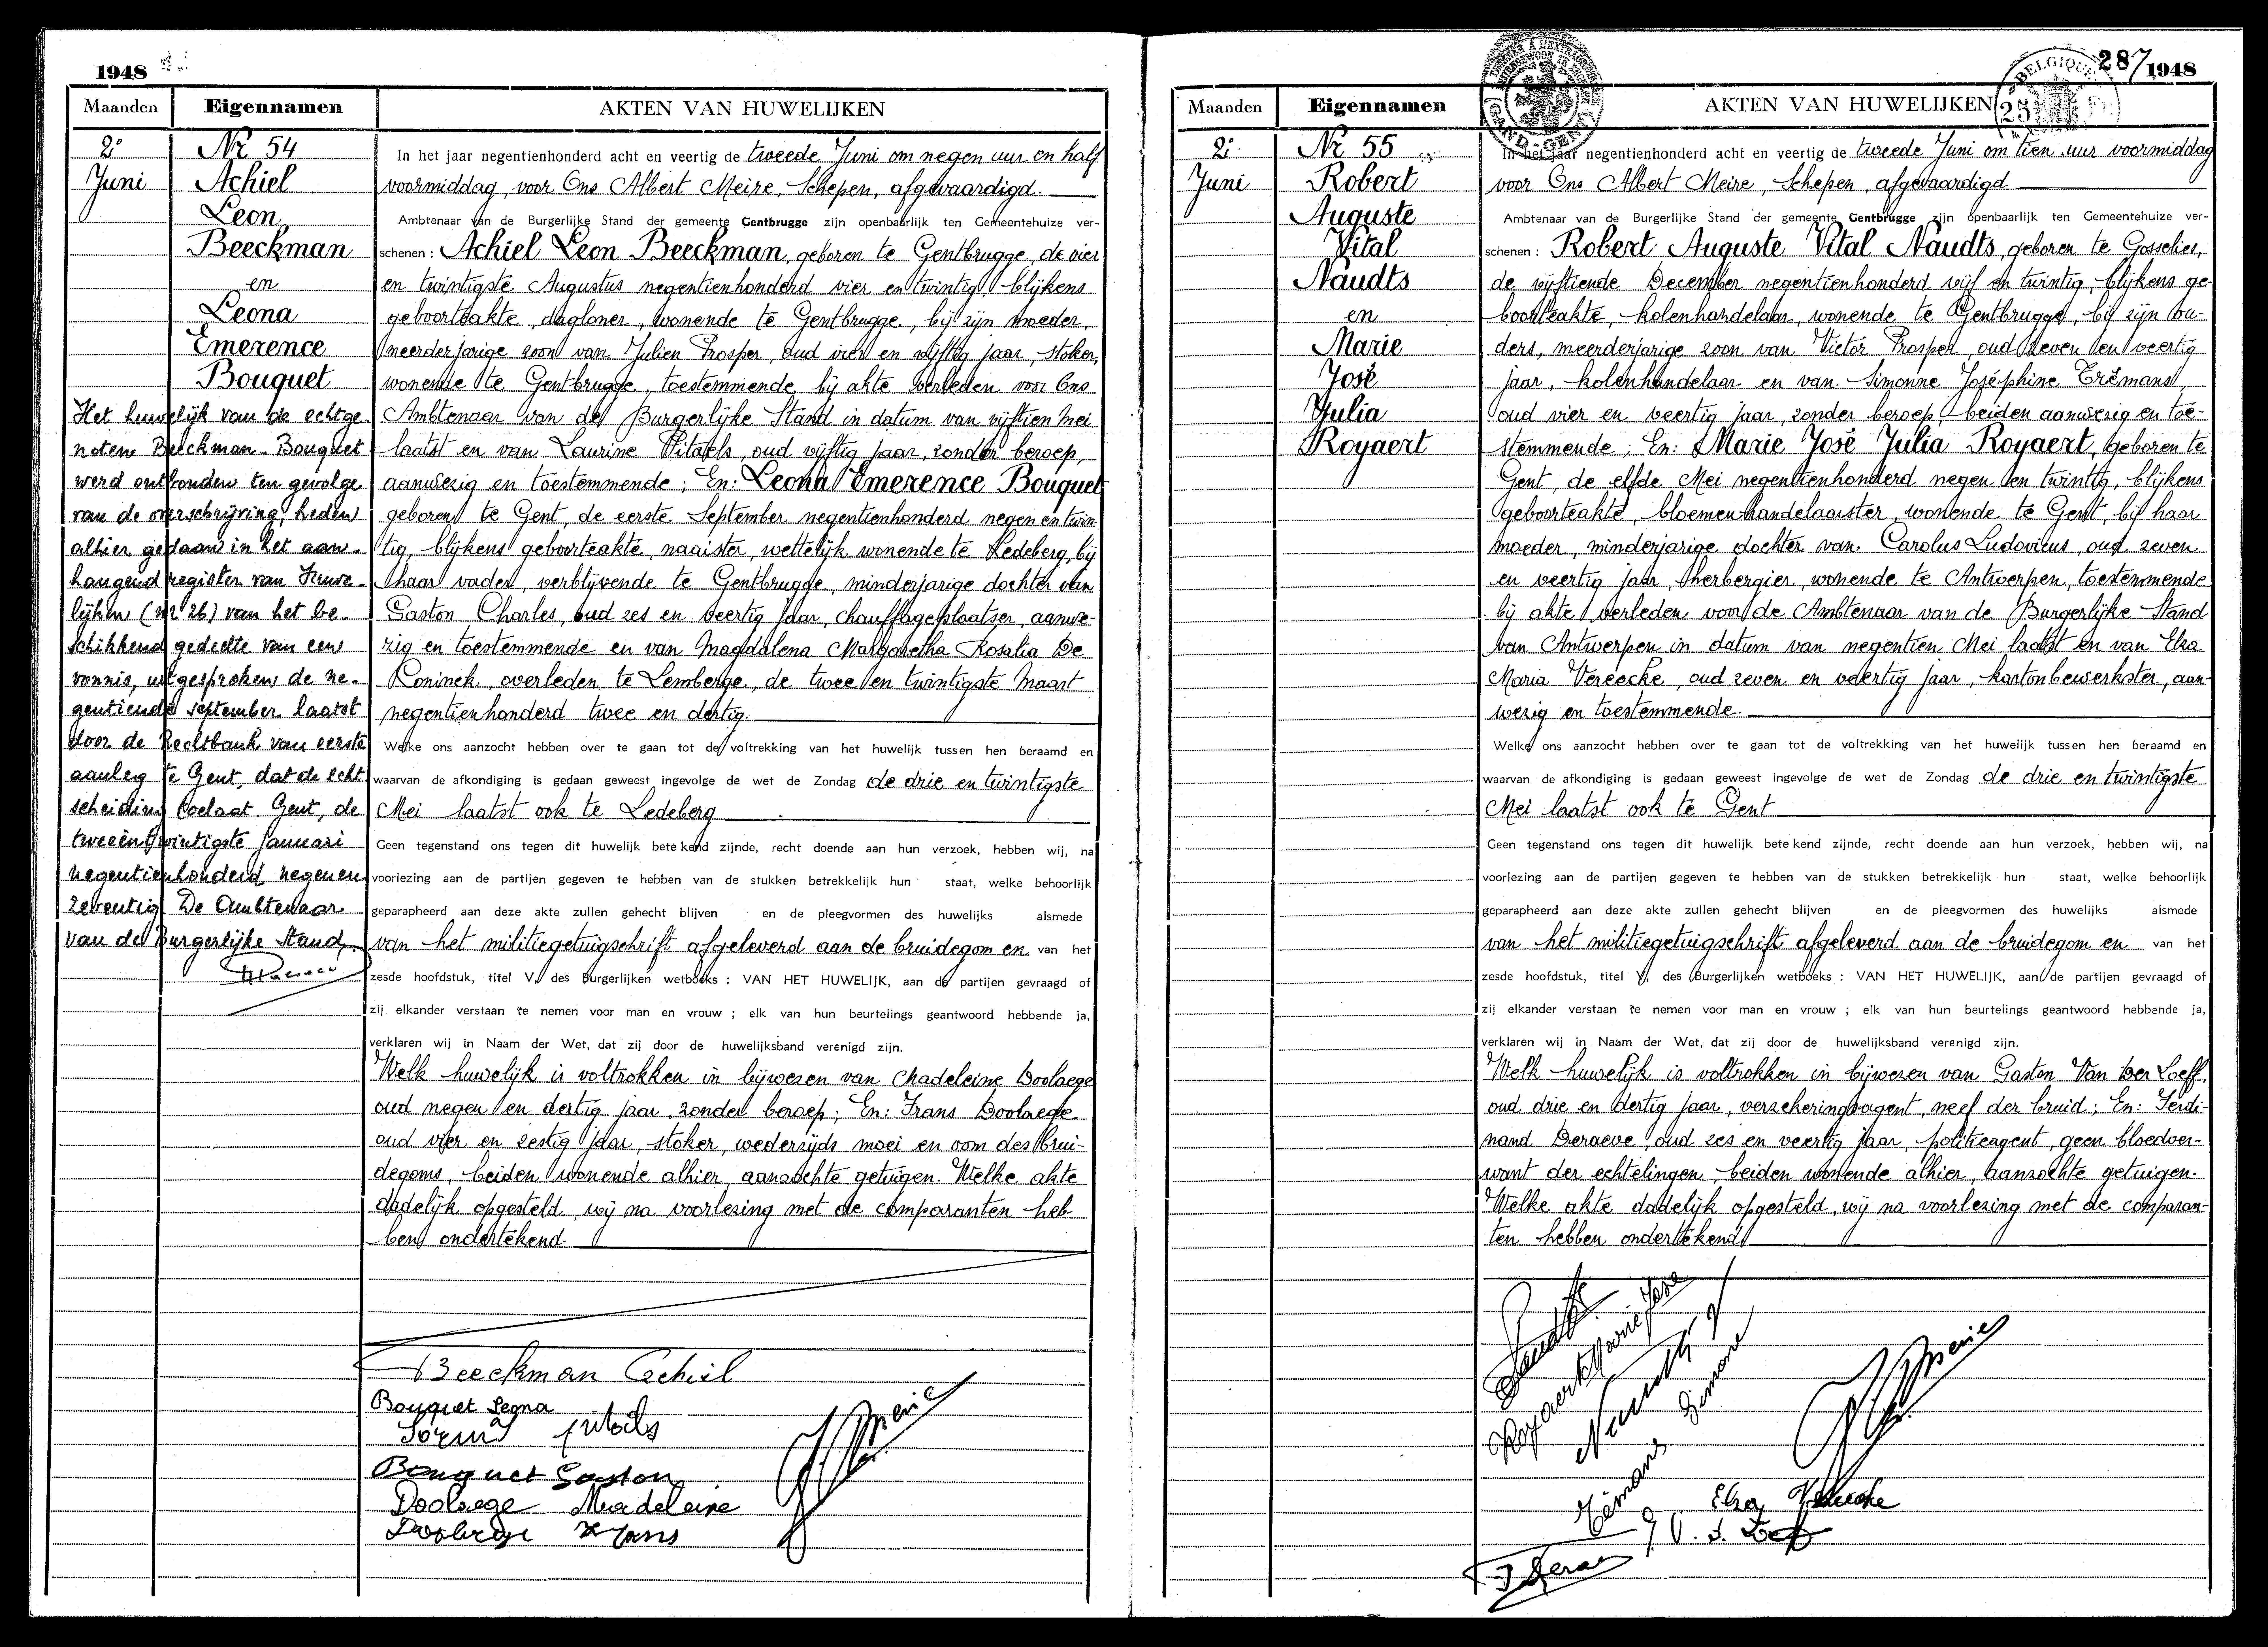 1948
Maanden
Eigennamen
AKTEN VAN HUWELIJKEN
2e
Juni
Nr 54
Achiel
Leon
Beeckman
en
Leona
Emerence
Bouquet
Het huwelijk van de echtge-
noten Beeckman-Bouquet
werd ontbonden ten gevolge
van de overschrijving, heden
alhier gedaan in het aan-
hangend register van Huwe-
lijken (nr 26) van het be-
schikkend gedeelte van een
vonnis, uitgesproken de ne-
gentiende september laatst
door de Rechtbank van eerste
aanleg te Gent, dat de echt
scheiding toelaat. Gent, de
tweeëntwintigste januari
negentienhonderd negenen-
zeventig. De Ambtenaar
van de Burgerlijke Stand,
In het jaar negentienhonderd acht en veertig de tweede Juni om negen uur en half
voormiddag, voor Ons Albert Meire, Schepen, afgevaardigd
Ambtenaar van de Burgerlijke Stand der gemeente Gentbrugge zijn openbaarlijk ten Gemeentehuize ver-
schenen : Achiel Leon Beeckman, geboren te Gentbrugge, de vier
en twintigste Augustus negentienhonderd vier en twintig, blijkens
geboorteakte, dagloner, wonende te Gentbrugge, bij zijn moeder,
meerderjarige zoon van Julien Prosper, oud vier en vijftig jaar, stoker,
wonende te Gentbrugge, toestemmende bij akte verleden voor Ons
Ambtenaar van de Burgerlijke Stand in datum van vijftien Mei
laatst en van Laurine Pitaels, oud vijftig jaar, zonder beroep,
aanwezig en toestemmende ; En: Leona Emerence Bouquet
geboren te Gent, de eerste September negentienhonderd negen en twin-
tig, blijkens geboorteakte, naaister, wettelijk wonende te Ledeberg, bij
haar vader, verblijvende te Gentbrugge, minderjarige dochter van
Gaston Charles, oud zes en veertig jaar, chauffageplaatser, aanwe-
zig en toestemmende en van Magdalena Margaretha Rosalia De
Koninck, overleden te Lemberge, de twee en twintigste Maart
negentienhonderd twee en dertig.
Welke ons aanzocht hebben over te gaan tot de voltrekking van het huwelijk tussen hen beraamd en
waarvan de afkondiging is gedaan geweest ingevolge de wet de Zondag de drie en twintigste
Mei laatst ook te Ledeberg
Geen tegenstand ons tegen dit huwelijk betekend zijnde, recht doende aan hun verzoek, hebben wij, na
voorlezing aan de partijen gegeven te hebben van de stukken betrekkelijk hun staat, welke behoorlijk
geparapheerd aan deze akte zullen gehecht blijven en de pleegvormen des huwelijks alsmede
van het militiegetuigschrift afgeleverd aan de bruidegom en van het
zesde hoofdstuk, titel V, des Burgerlijken wetboeks : VAN HET HUWELIJK, aan de partijen gevraagd of
zij elkander verstaan te nemen voor man en vrouw ; elk van hun beurtelings geantwoord hebbende ja,
verklaren wij in Naam der Wet, dat zij door de huwelijksband verenigd zijn.
Welk huwelijk is voltrokken in bijwezen van Madeleine Doolaege
oud negen en dertig jaar, zonder beroep; En: Frans Doolaege
oud vier en zestig jaar, stoker, wederzijds moei en oom des brui-
degoms, beiden wonende alhier, aanzochte getuigen. Welke akte
dadelijk opgesteld, wij na voorlezing met de comparanten heb-
ben ondertekend.
Beeckman Achiel
Bouquet Leona
Bouquet Gaston
Doolaege Madeleine
Doolaege Frans
287
1948
BELGIQUE
GAND-GENT
25
Maanden
Eigennamen
AKTEN VAN HUWELIJKEN
2e
Juni
Nr 55
Robert
Auguste
Vital
Naudts
en
Marie
José
Julia
Royaert
In het jaar negentienhonderd acht en veertig de tweede Juni om tien uur voormiddag
voor Ons Albert Meire, Schepen, afgevaardigd
Ambtenaar van de Burgerlijke Stand der gemeente Gentbrugge zijn openbaarlijk ten Gemeentehuize ver-
schenen : Robert Auguste Vital Naudts, geboren te Gosselies,
de vijftiende December negentienhonderd vijf en twintig, blijkens ge-
boorteakte, kolenhandelaar, wonende te Gentbrugge, bij zijn ou-
ders, meerderjarige zoon van Victor Prosper, oud zeven en veertig
jaar, kolenhandelaar en van Simonne Joséphine Trémans,
oud vier en veertig jaar, zonder beroep, beiden aanwezig en toe-
stemmende ; En: Marie José Julia Royaert, geboren te
Gent, de elfde Mei negentienhonderd negen en twintig, blijkens
geboorteakte, bloemenhandelaarster, wonende te Gent, bij haar
moeder, minderjarige dochter van Carolus Ludovicus, oud zeven
en veertig jaar, herbergier, wonende te Antwerpen, toestemmende
bij akte verleden voor de Ambtenaar van de Burgerlijke Stand
van Antwerpen in datum van negentien Mei laatst en van Elza
Maria Vereecke, oud zeven en veertig jaar, kartonbewerkster, aan-
wezig en toestemmende.
Welke ons aanzocht hebben over te gaan tot de voltrekking van het huwelijk tussen hen beraamd en
waarvan de afkondiging is gedaan geweest ingevolge de wet de Zondag de drie en twintigste
Mei laatst ook te Gent
Geen tegenstand ons tegen dit huwelijk betekend zijnde, recht doende aan hun verzoek, hebben wij, na
voorlezing aan de partijen gegeven te hebben van de stukken betrekkelijk hun staat, welke behoorlijk
geparapheerd aan deze akte zullen gehecht blijven en de pleegvormen des huwelijks alsmede
van het militiegetuigschrift afgeleverd aan de bruidegom en van het
zesde hoofdstuk, titel V, des Burgerlijken wetboeks : VAN HET HUWELIJK, aan de partijen gevraagd of
zij elkander verstaan te nemen voor man en vrouw ; elk van hun beurtelings geantwoord hebbende ja,
verklaren wij in Naam der Wet, dat zij door de huwelijksband verenigd zijn.
Welk huwelijk is voltrokken in bijwezen van Gaston Van Der Loeff,
oud drie en dertig jaar, verzekeringsagent, neef der bruid; En: Ferdi-
nand Deraeve, oud zes en veertig jaar, politieagent, geen bloedver-
want der echtelingen, beiden wonende alhier, aanzochte getuigen.
Welke akte dadelijk opgesteld, wij na voorlezing met de comparan-
ten hebben ondertekend
Royaert Marie José
Elza Vereecke